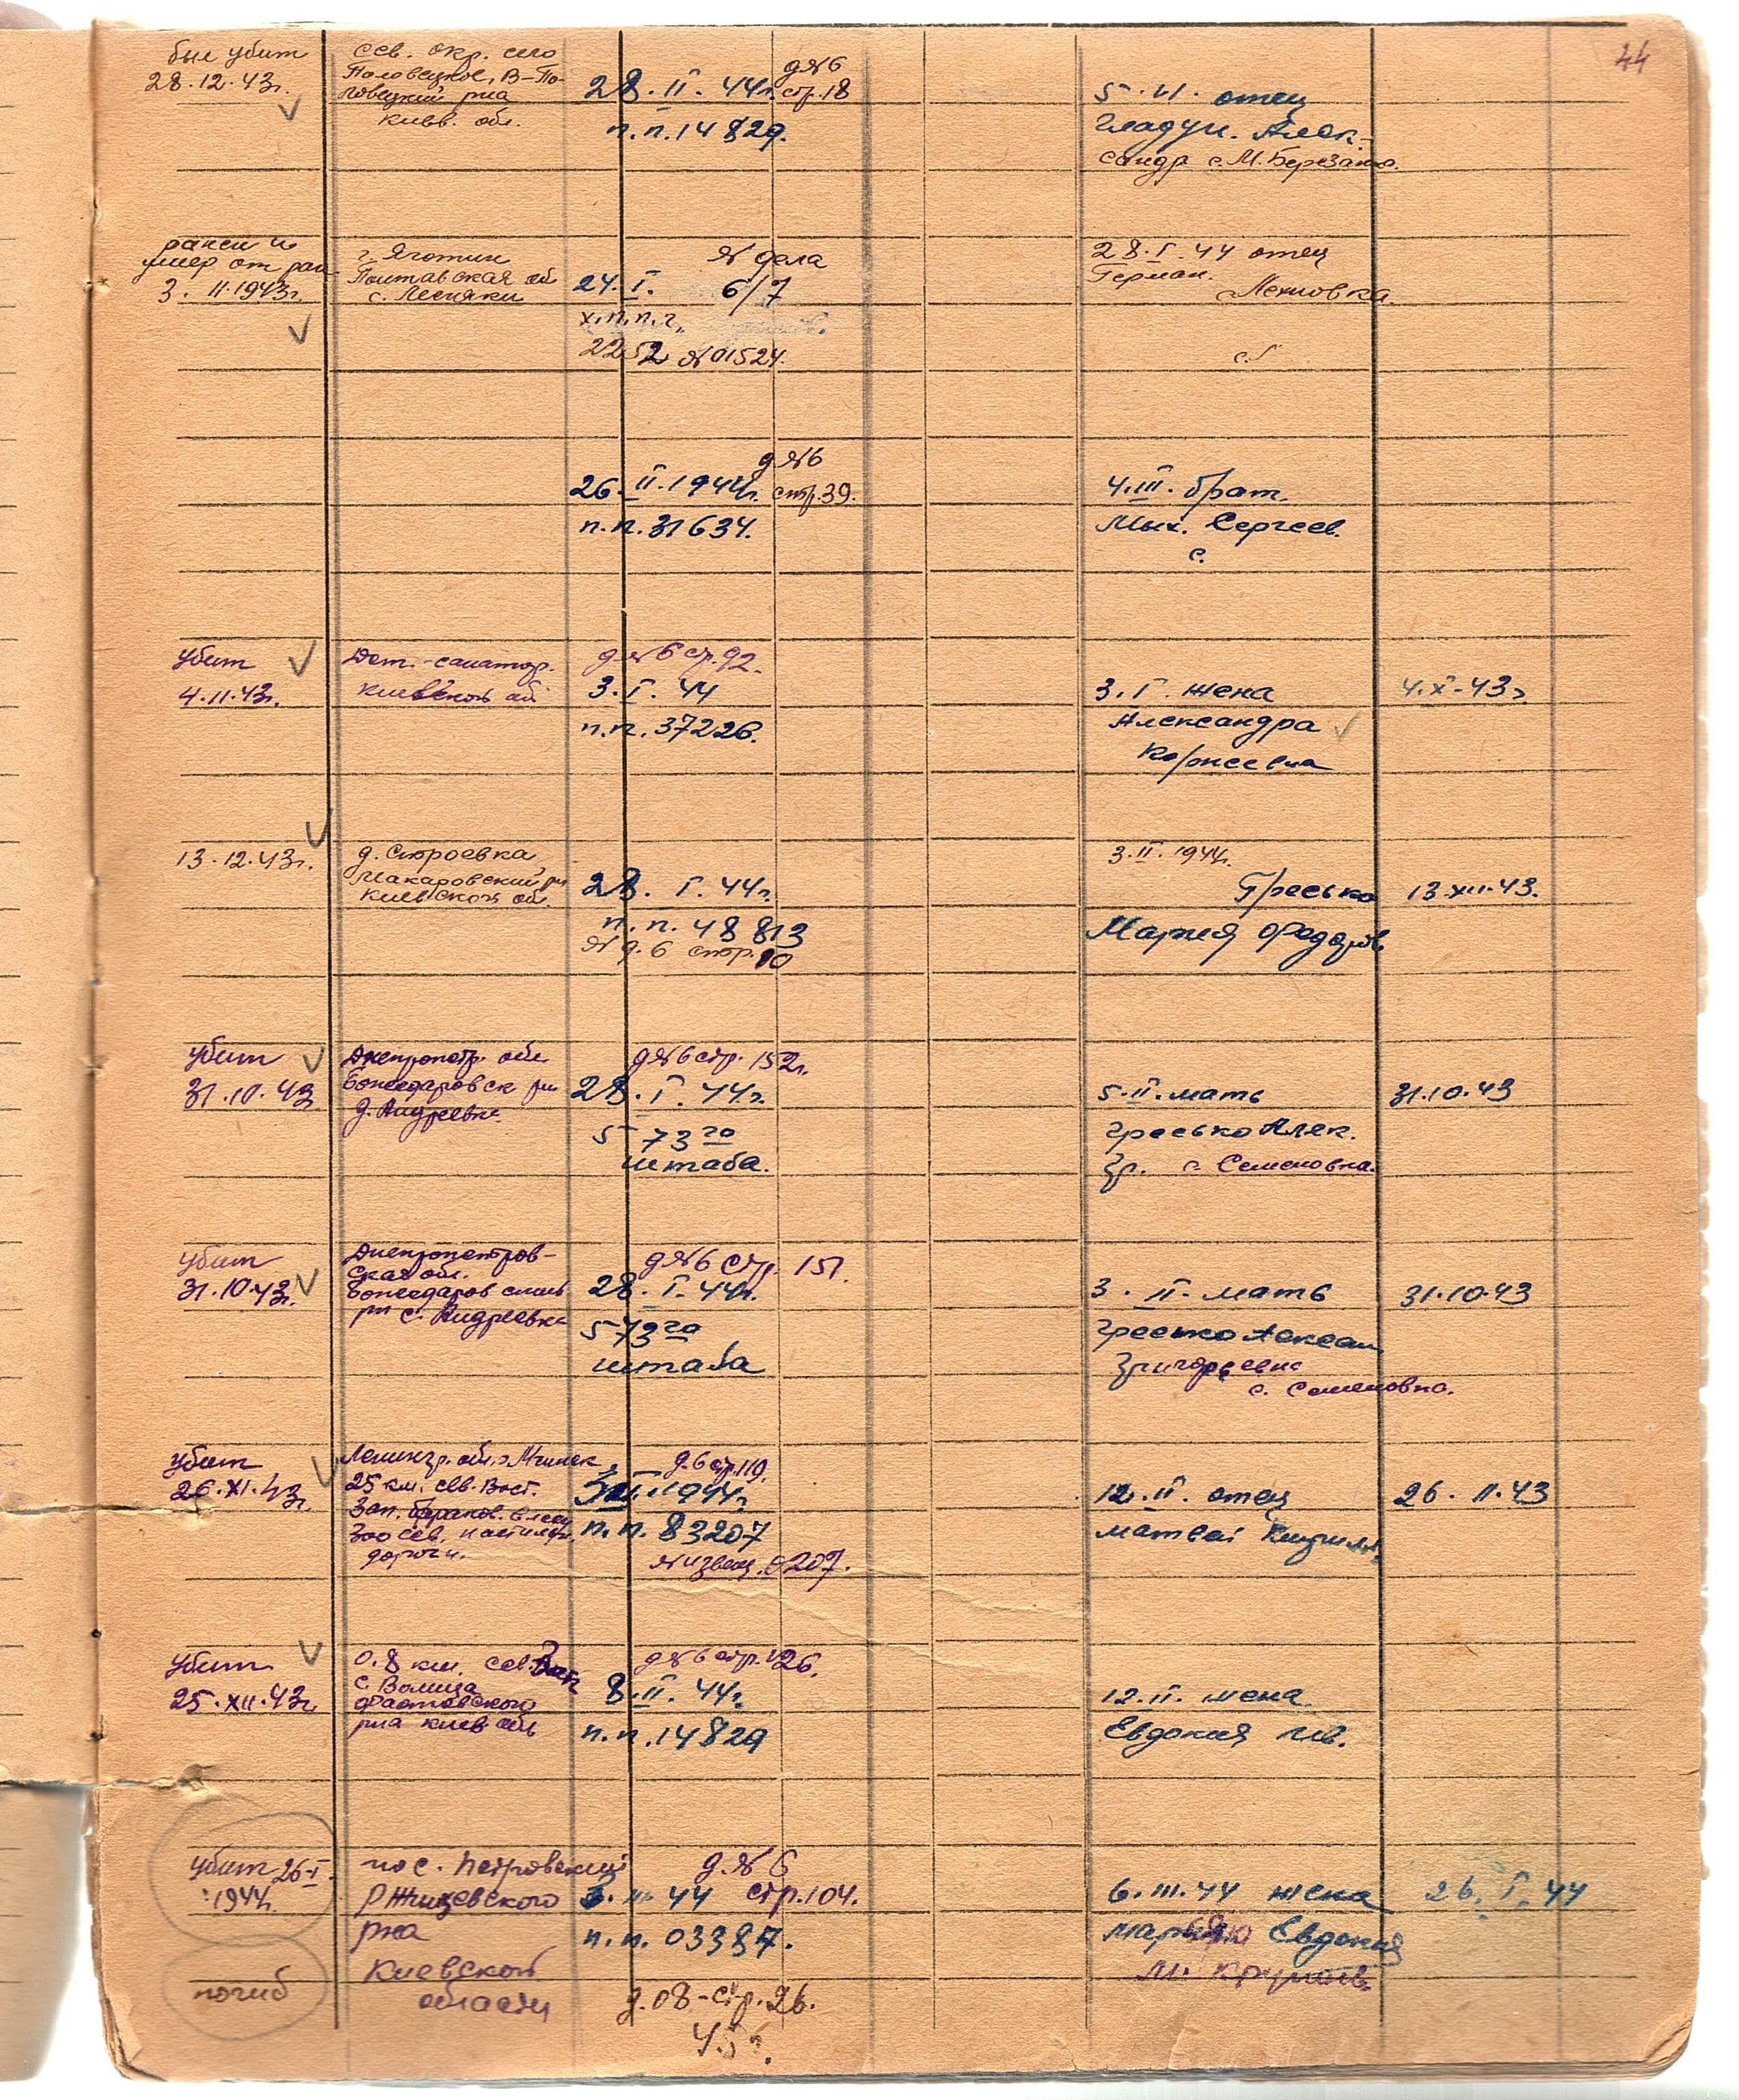 44
был убит
28.12.43г.
сев. окр. село
Половецкое, В-По-
ловецкий р-на
Киев. обл.
д №6
28.II.44г. стр.18
п.п.14829.
5.VI. отец
Гладун. Алек-
сандр с. М. Березанка.
ранен и
умер от ран
3.11.1943г.
г. Яготин
Полтавская об
с. Лесняки
№ дела
24.I. 6/7
х.п.п.г.
2252 №01524.
28.I.44 отец
Герман.
д №6
26.II.1944г. стр.39.
п.п.31634.
4.III. брат.
Мих. Сергеев.
с.
убит
4.11.43г.
Дет.-санатор.
Киевской об
д №6 стр.92.
3.I.44
п.п.37226.
3.I. жена
Александра
Корнеевна
4.X-43г
13.12.43г.
д. Строевка
Макаровский рн
Киевской об.
28.I.44г.
п.п.48813
№ д.6 стр.10
3.II.1944г.
Гресько
Мария Федоров.
13.XII.43.
убит
31.10.43
Днепропетр. обл
Божедаровск рн
д. Андреевка
д №6 стр.152г.
28.I.44г.
573го
штаба.
5.II. мать
Гресько Алек.
Гр. с. Семеновка.
31.10.43
убит
31.10.43г.
Днепропетров-
ская обл.
Божедаровский
рн с. Андреевка
д №6 стр. 151.
28.I.44г.
573го
штаба
3.II. мать
Гресько Алексан
Григорьевна
с. Семеновка.
31.10.43
убит
26.XI.43г.
Ленингр. обл. Мгинск.
25 км. сев. Вост.
300 сев. настил.
дороги.
д.6 стр.119.
1944г
п.п.83207
№ извещ. 0207.
12.II. отец
Матвей
26.11.43
убит
25.XII.43г.
0.8 км. сев. Зап
с Волица
Фастовского
р-на Киев. обл
д №6 стр.126.
8.II.44г.
п.п.14829
12.II. жена
Евдокия Ив.
убит 26-I
1944г.
погиб
пос. Петровский
Ржищевского
р-на
Киевской
области
д. №6
III 44 стр.104.
п.п.03387.
д.08-стр.26.
45г.
6.III.44 жена
Евдокия
26.I.44